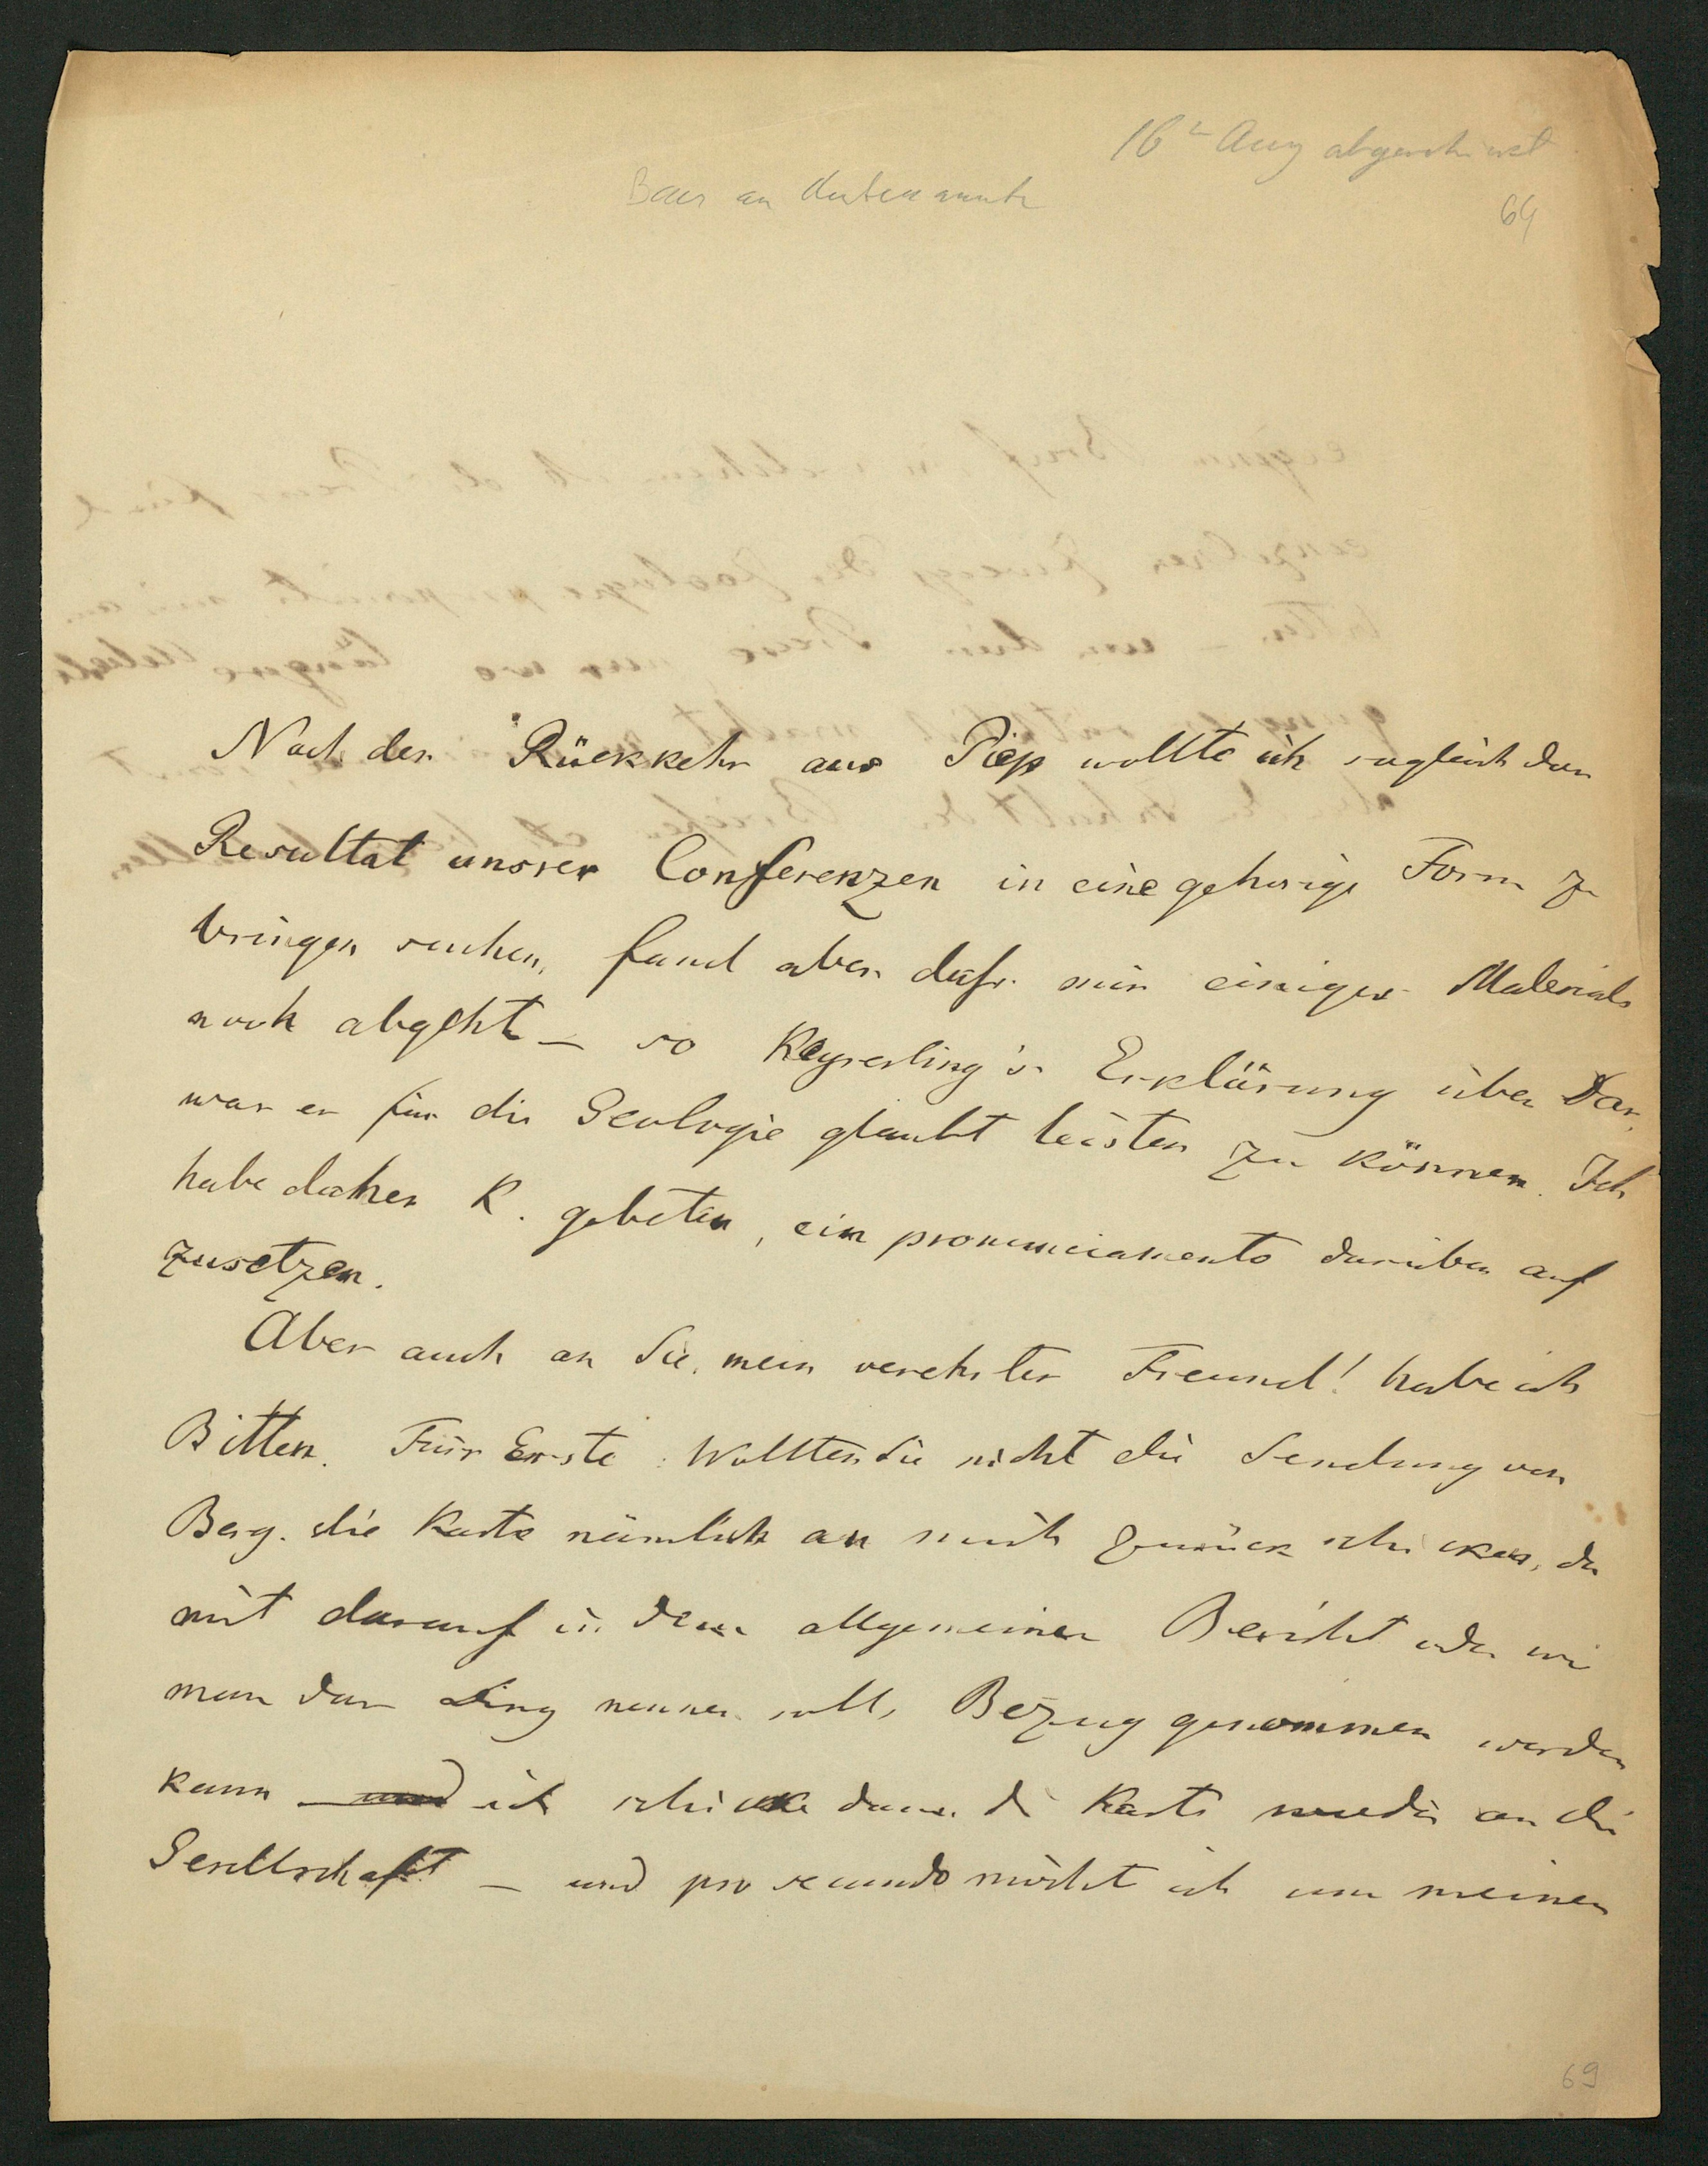 16ᵗ Aug abgeschickt
Baer an Unbekannte
64
Nach der Rückkehr aus Piep wollte ich sogleich das
Resultat unsrer Conferenzen in eine gehörige Form zu
bringen suchen, fand aber dass mir einiges Material
noch abgeht – so Keyserling's Erklärung über Das,
was er für die Geologie glaubt leisten zu können. Ich
habe daher K. gebeten, ein pronunciamento darüber auf
zusetzen.
Aber auch an Sie, mein verehrter Freund! habe ich
Bitten. Fürs Erste: Wollten Sie nicht die Sendung von
Berg. die Karte nämlich an mich zurück schicken, da
mit darauf in dem allgemeinen Bericht oder wie
man das Ding nennen soll, Bezug genommen werden
kann – ich schicke dann die Karte wieder an die
Gesellschaft – und pro secundo möcht ich um meinen
69